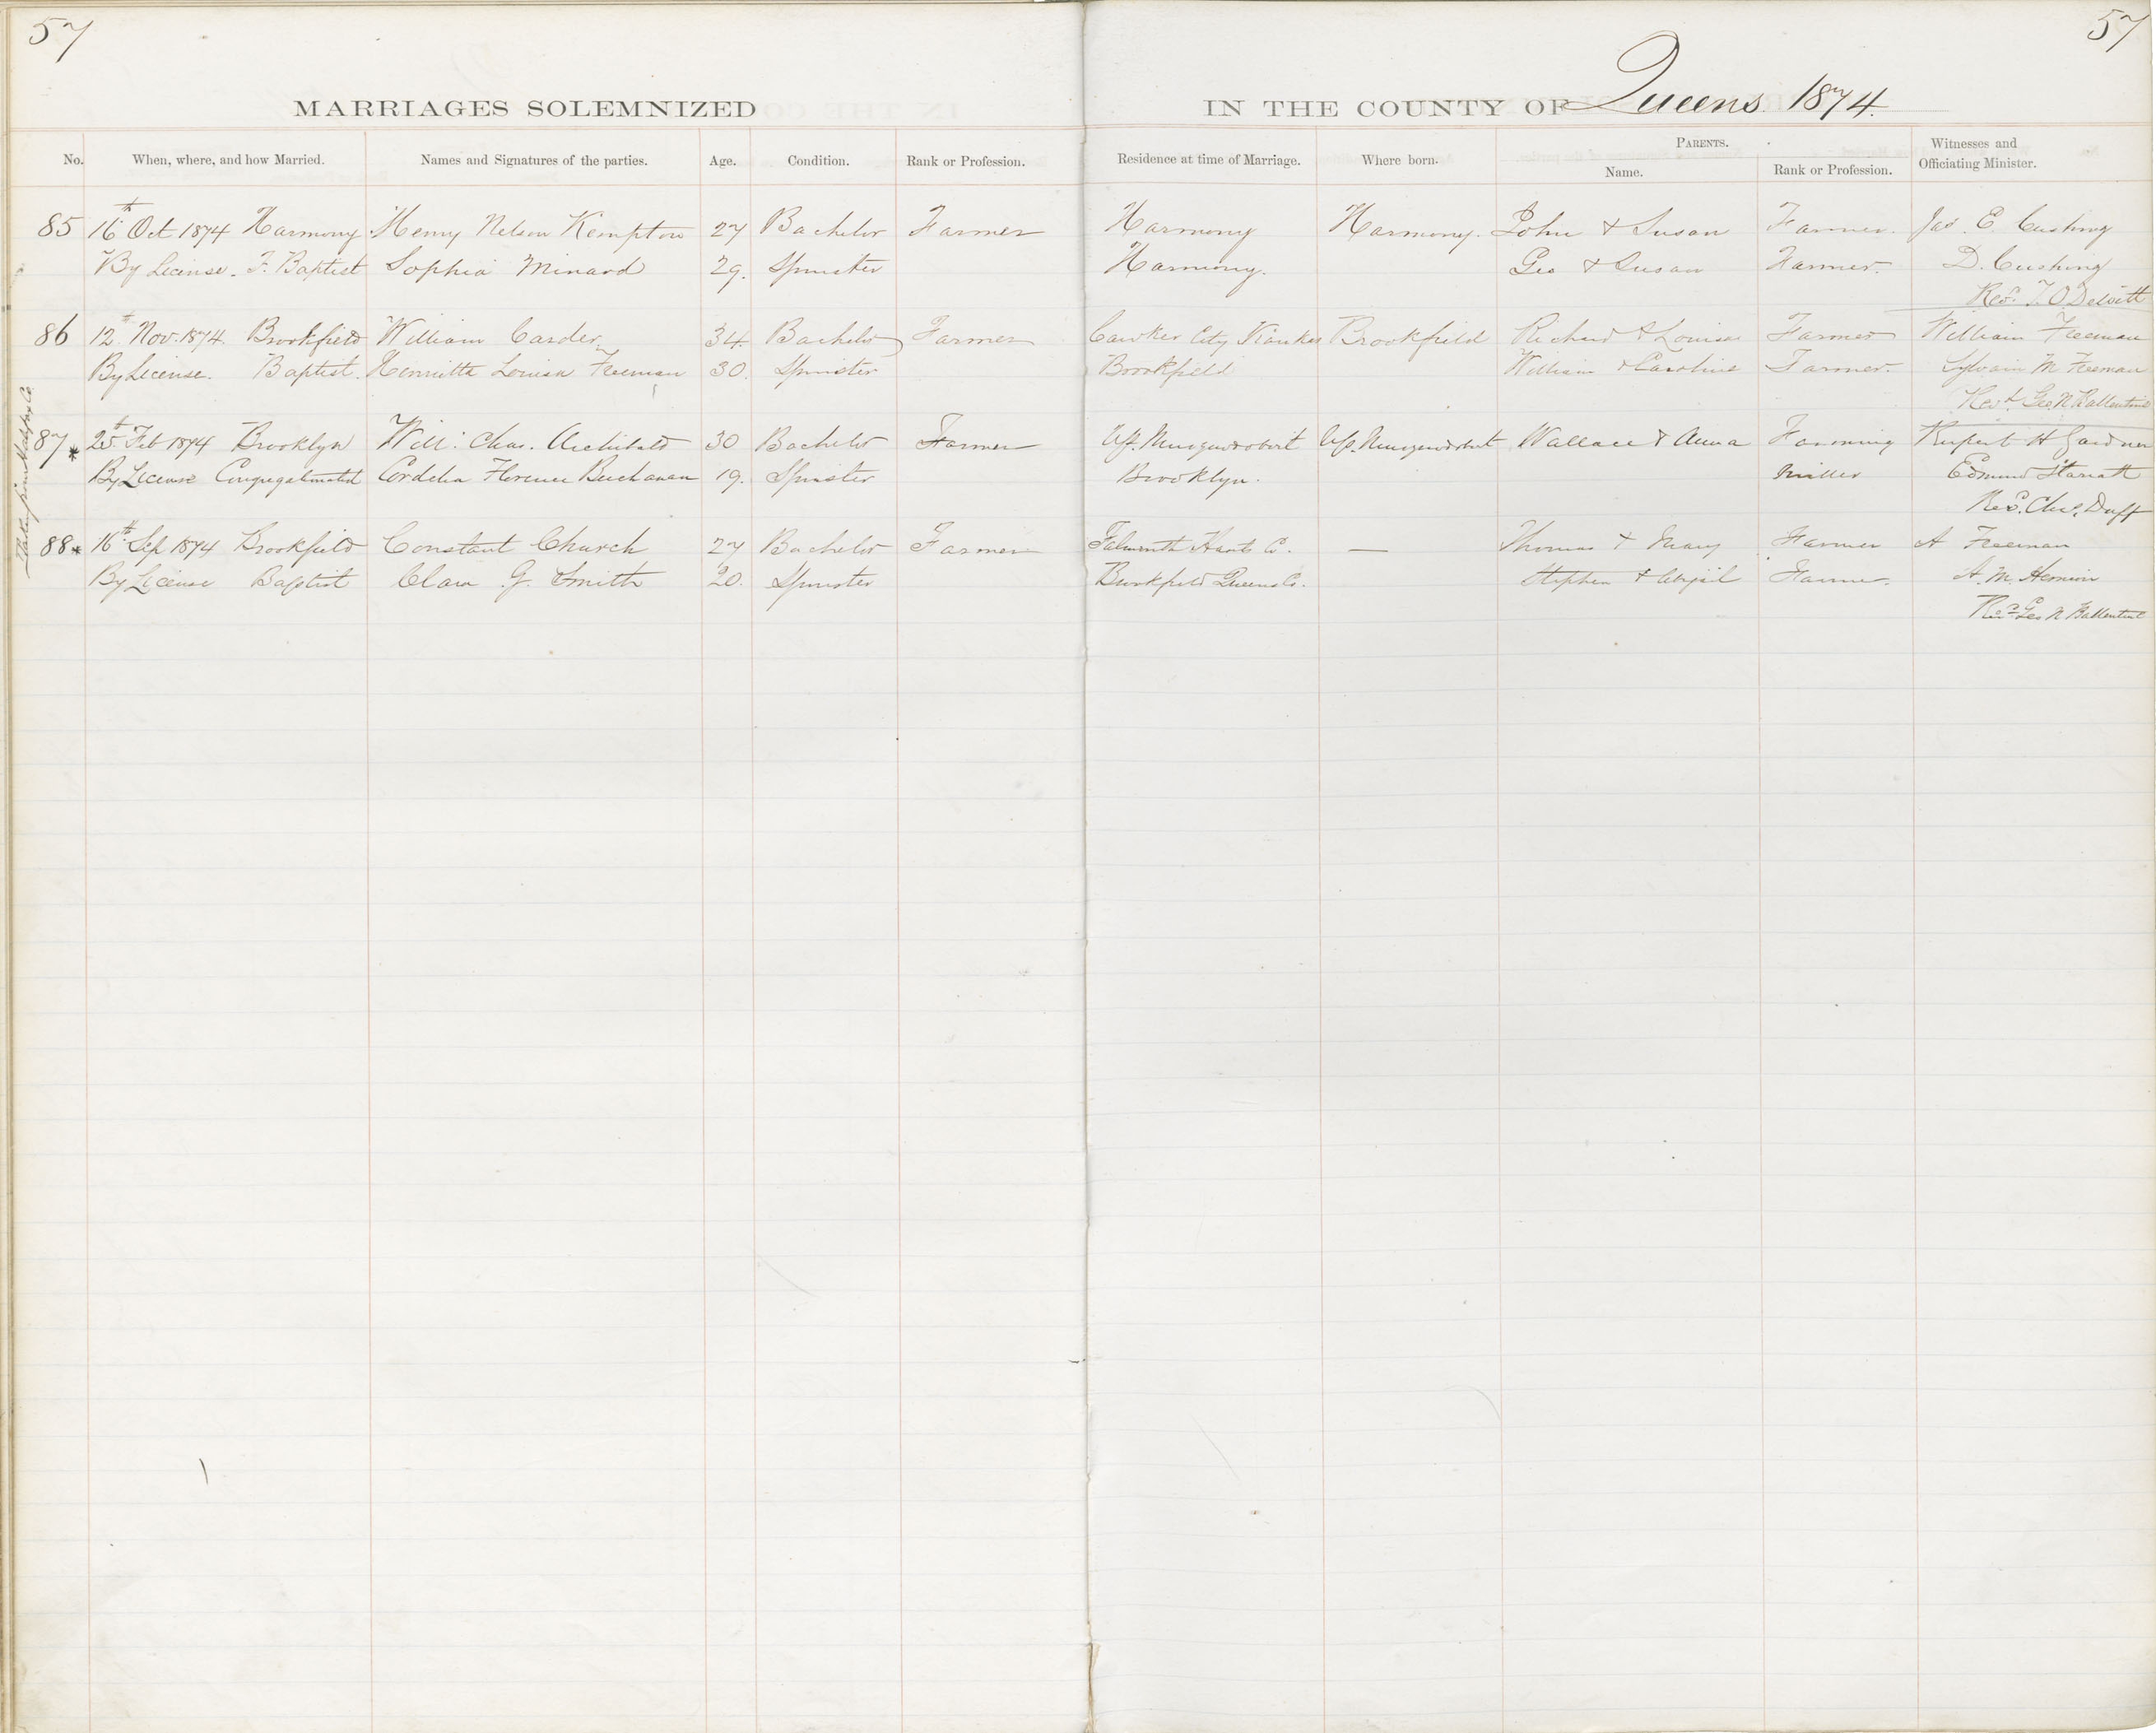 57
57
MARRIAGES SOLEMNIZED IN THE COUNTY OF Queens 1874.
No. When, where, and how Married. Names and Signatures of the parties. Age. Condition. Rank or Profession. Residence at time of Marriage. Where born. PARENTS. Name. Rank or Profession. Witnesses and Officiating Minister.
85 16th Oct 1874 Harmony Henry Nelson Kempton 27 Bachelor Farmer Harmony Harmony. John & Susan Farmer. Jas. E. Cushing
By License. F. Baptist Sophia Minard 29. Spinster Harmony. Geo & Susan Farmer. D. Cushing
Revd. T. O. DeWitt
86 12th Nov. 1874. Brookfield William Carder 34 Bachelor Farmer Cawker City Brookfield Richard & Louisa Farmer William Freeman
By License. Baptist. Henritta Louisa Freeman 30. Spinster Brookfield William & Caroline Farmer. M Freeman
Revd. Geo N Ballentine
87* 25th Feb 1874 Brooklyn Will. Chas. Archibald 30 Bachelor Farmer Up. Musquodoboit Up. Musquodoboit Wallace & Anna Farming Rupert H Gardner
By License Congregational Cordelia Florence Buchanan 19. Spinster Brooklyn. Miller Edmund Starratt
Revd. Chas. Duff
88* 16th Sep 1874 Brookfield Constant Church 27 Bachelor Farmer Falmouth Hants Co. — Thomas & Mary Farmer A Freeman
By License Baptist Clara G. Smith 20. Spinster Brookfield Queens Co. Stephen & Abigail Farmer. A. M.
Revd. Geo N Ballentine